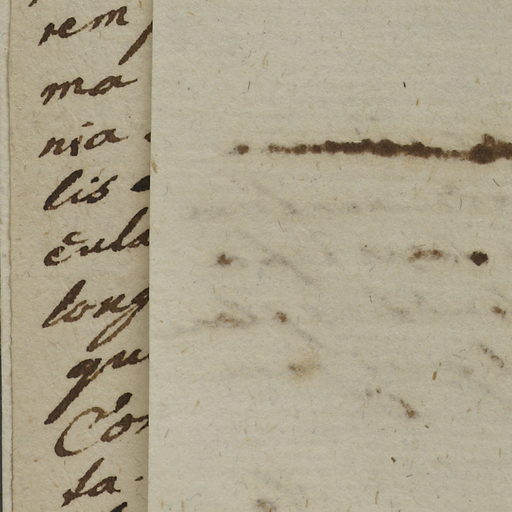 rem
ma
nia
lis
cula
long
qu
Con
ta.